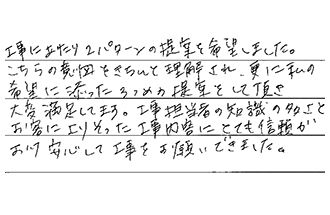 工事にあたり2パターンの提案を希望しました。
こちらの意図をきちんと理解され、更に私の
希望に添った3つめの提案をして頂き
大変満足してます。工事担当者の知識の多さと
お客によりそった工事内容にとても信頼が
おけ安心して工事をお願いできました。